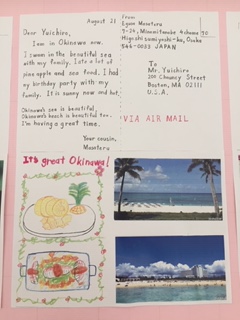 August 21
Dear Yuichiro,
I am in Okinawa now.
I swam in the beautiful sea
with my family. I ate a lot of
pine apple and sea food. I had
my birthday party with my
family. It is sunny now and hot.
Okinawa's sea is beautiful.
Okinawa's beach is beautiful too.
I'm having a great time.
Your cousin,
Masataru
From
Masataru
546-0033 JAPAN
To
Mr. Yuichiro
Boston, MA 02111
U.S.A.
VIA AIR MAIL
It's great Okinawa!